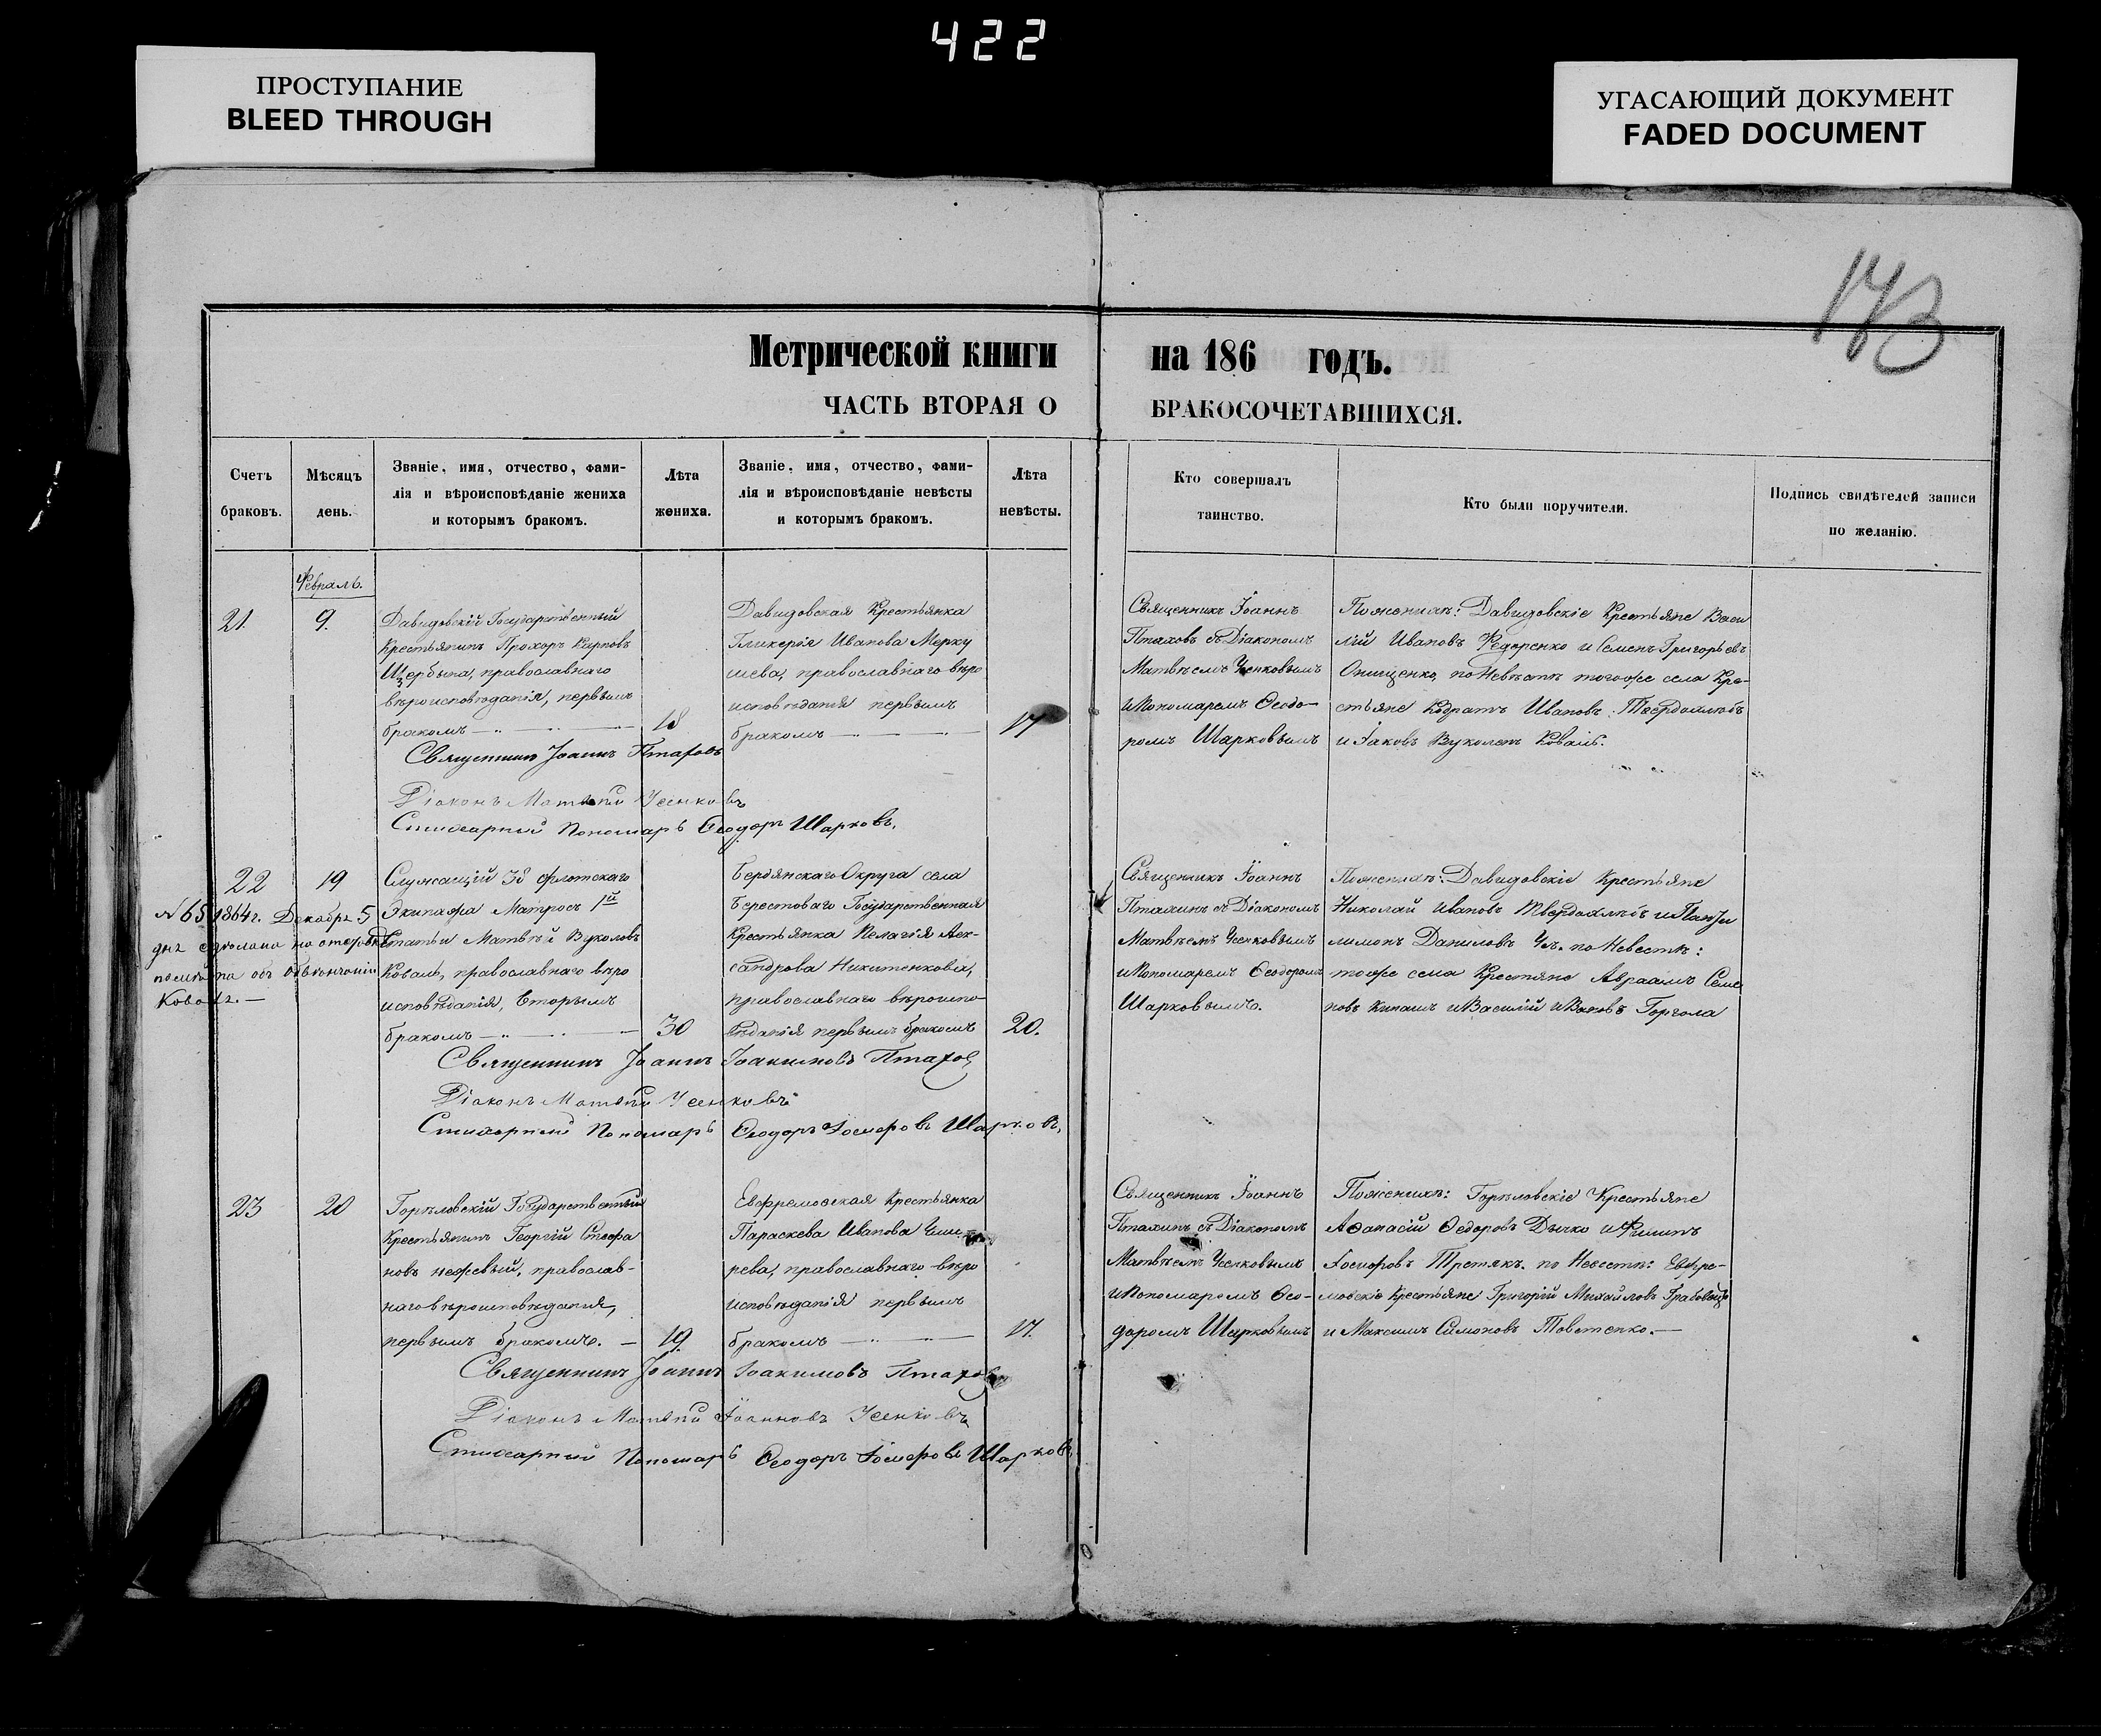 422
ПРОСТУПАНИЕ
BLEED THROUGH
УГАСАЮЩИЙ ДОКУМЕНТ
FADED DOCUMENT
173
Метрической книги на 186 годъ.
ЧАСТЬ ВТОРАЯ О БРАКОСОЧЕТАВШИХСЯ.
Счетъ
браковъ.
Мѣсяцъ
день.
Званіе, имя, отчество, фами-
лія и вѣроисповѣданіе жениха
и которымъ бракомъ.
Лѣта
жениха.
Званіе, имя, отчество, фами-
лія и вѣроисповѣданіе невѣсты
и которымъ бракомъ.
Лѣта
невѣсты.
Кто совершалъ
таинство.
Кто были поручители.
Подпись свидѣтелей записи
по желанію.
Февраль.
21.
9.
Давидовскій Государственный
Крестьянинъ Прохоръ Карповъ
Щербина, православнаго
вѣроисповѣданія, первымъ
бракомъ
18
Давидовская Крестьянка
Гликерія Иванова Мерку
шева, православнаго вѣро
исповѣданія первымъ
бракомъ
17
Священникъ Іоаннъ
Птаховъ съ Діакономъ
Матвѣемъ Усенковымъ
и Пономаремъ Ѳеодо-
ромъ Шарковымъ
По женихѣ: Давидовскіе Крестьяне Васи
лій Ивановъ Федоренко и Семенъ Григорьевъ
Онищенко, по Невѣстѣ тогоже села Кре-
стьяне Кодратъ Ивановъ Твердохлѣбъ
и Іаковъ Вуколовъ Коваль.
Священникъ Іоаннъ Птаховъ
Діаконъ Матвѣй Усенковъ
Стихарный Пономарь Ѳеодоръ Шарковъ.
22
19
Служащій 38 флотскаго
Экипажа Матросъ 1й
Статьи Матвѣй Вуколовъ
Коваль, православнаго вѣро
исповѣданія, вторымъ
бракомъ
30
Бердянскаго Округа села
Берестоваго Государственная
Крестьянка Пелагія Алек-
сандрова Никитенкова,
православнаго вѣроиспо-
вѣданія первымъ бракомъ
20.
Священникъ Іоаннъ
Птахинъ съ Діакономъ
Матвѣемъ Усенковымъ
и Пономаремъ Ѳеодоромъ
Шарковымъ.
По женихѣ: Давидовскіе Крестьяне
Николай Ивановъ Твердохлѣбъ и Панте
лимонъ Даниловъ по Невестѣ:
тоже села Крестяне Авраамъ Семе
новъ Кинашъ и Василій Ивановъ Горгола
№65 1864г. Декабря 5
дня сдѣлана
объ обвѣнчаніи
Коваля.
Священникъ Іоаннъ Іоакимовъ Птаховъ
Діаконъ Матвѣй Усенковъ
Стихарный Пономарь Ѳеодоръ Іосифовъ Шарковъ,
23
20
Горѣловскій Государственный
Крестьянинъ Георгій Стефа
новъ Нежевый, православ-
наго вѣроисповѣданія,
первымъ бракомъ.
19.
Евфремовская Крестьянка
Параскева Иванова
рева, православнаго вѣро
исповѣданія первымъ
бракомъ
17.
Священникъ Іоаннъ
Птахинъ съ Діакономъ
Матвѣемъ Усенковымъ
и Пономаромъ Ѳео-
доромъ Шарковымъ
По женихѣ: Горѣловскіе Крестьяне
Аѳанасій Ѳедоровъ Дычко и Филипъ
Іосифовъ Третякъ. по Невестѣ: Евфре-
мовскіе Крестьяне Григорій Михайловъ
и Максимъ Симоновъ Товстенко.
Священникъ Іоаннъ Іоакимовъ Птаховъ
Діаконъ Матвѣй Іоанновъ Усенковъ
Стихарный Пономарь Ѳеодоръ Іосифовъ Шарковъ